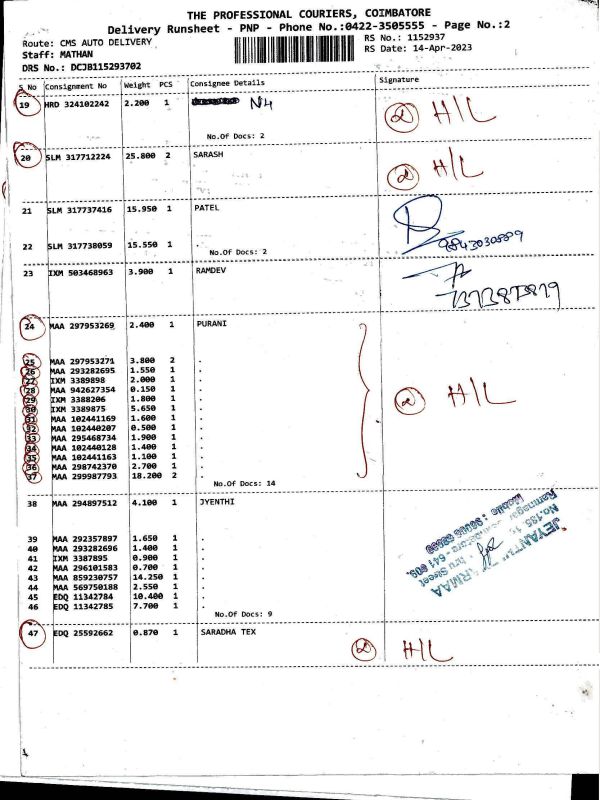 THE PROFESSIONAL COURIERS, COIMBATORE
Delivery Runsheet - PNP - Phone No.:0422-3505555 - Page No.:2
Route: CMS AUTO DELIVERY RS No.: 1152937
Staff: MATHAN RS Date: 14-Apr-2023
DRS No.: DCJB115293702
S No Consignment No Weight PCS Consignee Details Signature
19 HRD 324102242 2.200 1 N4
H/L
No.Of Docs: 2
20 SLM 317712224 25.800 2 SARASH
H/L
21 SLM 317737416 15.950 1 PATEL
22 SLM 317738059 15.550 1 .
No.Of Docs: 2
23 IXM 503468963 3.900 1 RAMDEV
24 MAA 297953269 2.400 1 PURANI
25 MAA 297953271 3.800 2 .
26 MAA 293282695 1.550 1 .
27 IXM 3389898 2.000 1 .
28 MAA 942627354 0.150 1 .
29 IXM 3388206 1.800 1 .
30 IXM 3389875 5.650 1 .
31 MAA 102441169 1.600 1 .
32 MAA 102440207 0.500 1 .
33 MAA 295468734 1.900 1 .
34 MAA 102440128 1.400 1 .
35 MAA 102441163 1.100 1 .
36 MAA 298742370 2.700 1 .
37 MAA 299987793 18.200 2 .
H/L
No.Of Docs: 14
38 MAA 294897512 4.100 1 JYENTHI
39 MAA 292357897 1.650 1 .
40 MAA 293282696 1.400 1 .
41 IXM 3387895 0.900 1 .
42 MAA 296101583 0.700 1 .
43 MAA 859230757 14.250 1 .
44 MAA 569750188 2.550 1 .
45 EDQ 11342784 10.400 1 .
46 EDQ 11342785 7.700 1 .
No.Of Docs: 9
47 EDQ 25592662 0.870 1 SARADHA TEX
H/L